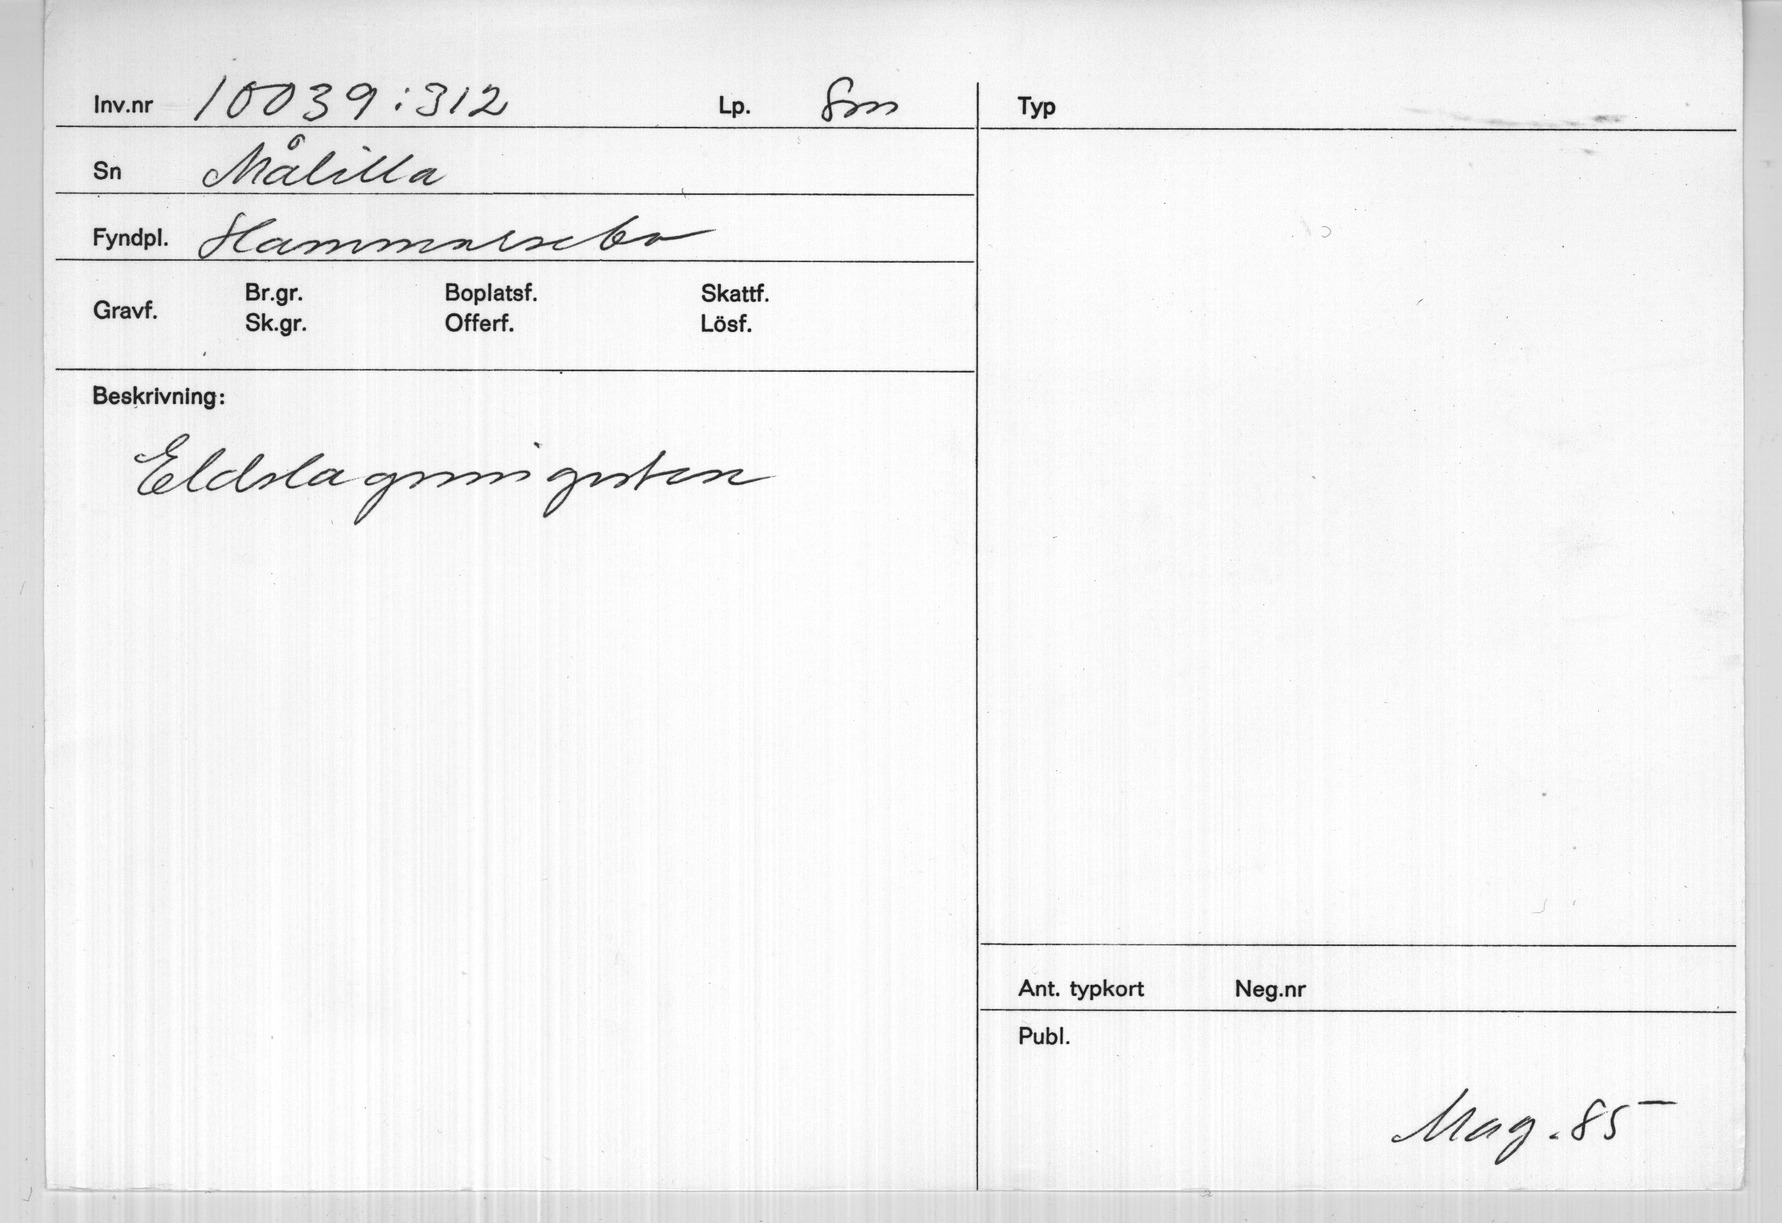 Inv.nr 10039:312 Lp. Sm
Sn Målilla
Fyndpl. Hammarsebo
Gravf. Br.gr. Boplatsf. Skattf.
Sk.gr. Offerf. Lösf.
Beskrivning:
Eldslagningssten
Typ
Ant. typkort Neg.nr
Publ.
Mag. 85